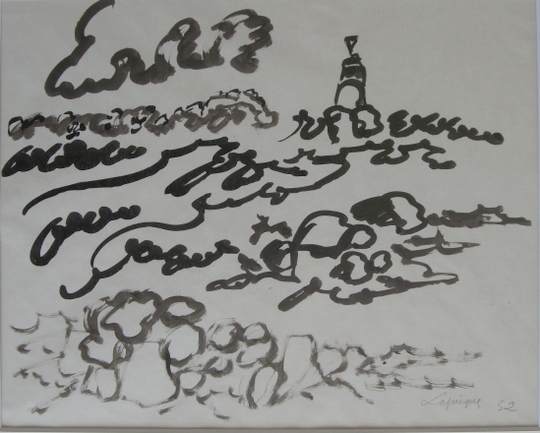 Lapicque 52